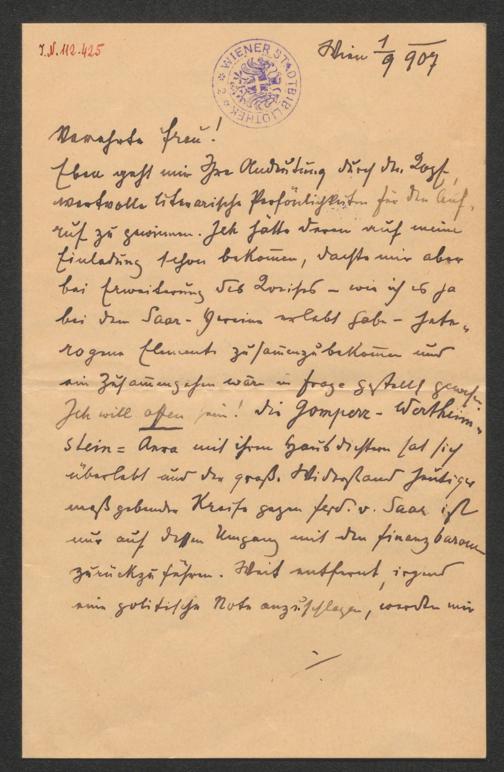 I.N. 112.425
WIENER STADTBIBLIOTHEK * 2 *
Wien 1/9 907
Verehrte Frau!
Eben geht mir Ihre Andeutung durch den Kopf,
wertvolle literarische Persönlichkeiten für den Auf-
ruf zu gewinnen. Ich hätte deren auf meine
Einladung schon bekommen, dachte mir aber
bei Erweiterung des Kreises – wie ich es ja
bei dem Saar-Vereine erlebt habe – hete-
rogene Elemente zusammenzubekommen und
ein Zusammengehen wäre in Frage gestellt gewesen.
Ich will offen sein! Die Gomperz-Wertheim-
stein=Aera mit ihren Hausdichtern hat sich
überlebt und der große Widerstand heutiger
maßgebender Kreise gegen Ferd. v. Saar ist
nur auf dessen Umgang mit den Finanzbaronen
zurückzuführen. Weit entfernt, irgend
eine politische Note anzuschlagen, werden wir